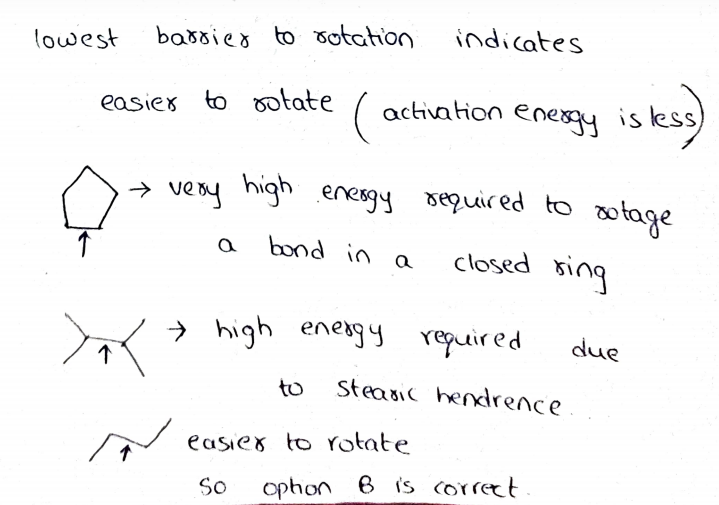 lowest barrier to rotation indicates
easier to rotate (activation energy is less)
→ very high energy required to rotage
a bond in a closed ring
→ high energy required due
to stearic hendrence.
easier to rotate
so option B is correct.